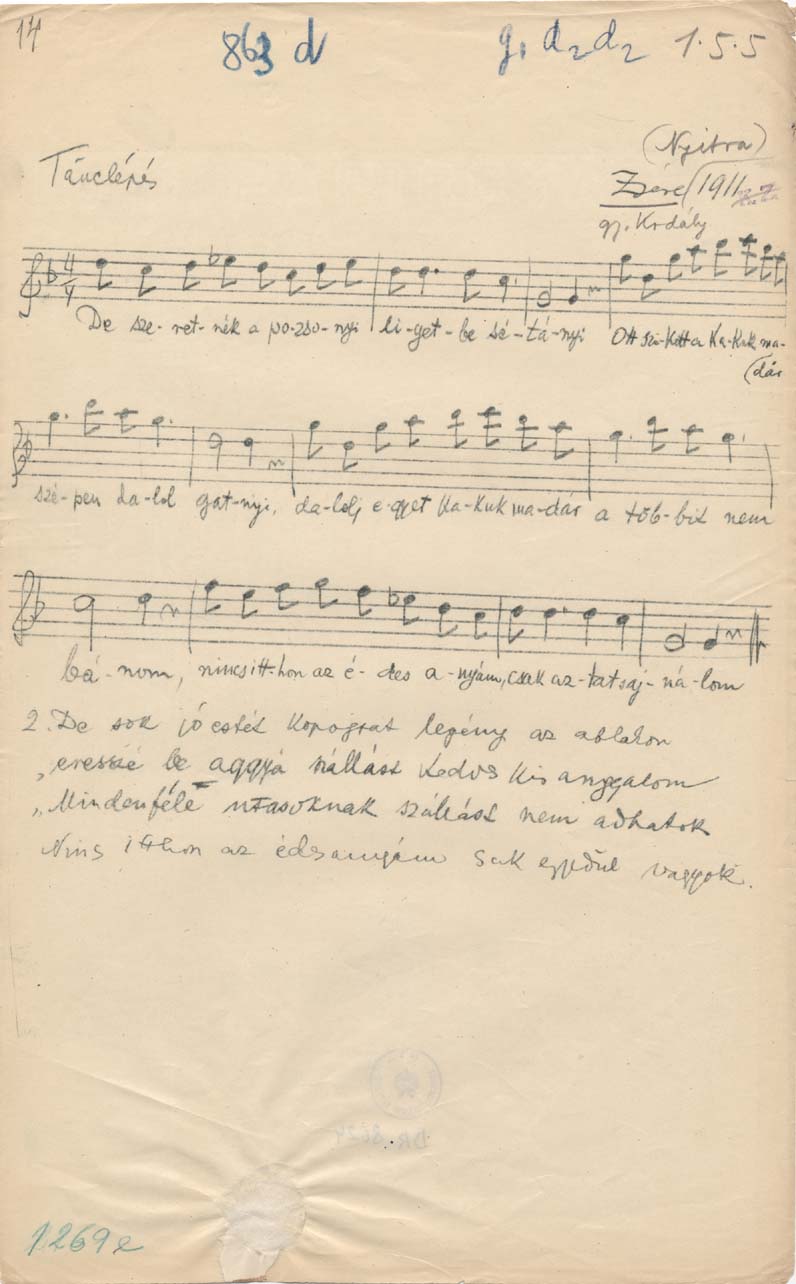 14
863 d
g1 d2 d2 1.5.5
(Nyitra)
Tánclépés
Zsére 1911
gy. Kodály
De sze-ret-nék a po-zso-nyi li-get-be sé-tá-nyi Ott szo-kott a ka-kuk ma-
(dár
szé-pen da-lol gat-nyi, da-lolj e-gyet ka-kuk ma-dár a töb-bit nem
bá-nom, nincs itt-hon az é-des a-nyám, csak az-tat saj-ná-lom
2. De sok jó estét kopogtat legény az ablakon
„eressze be aggyá szállást kedves kis angyalom
„Mindenféle utasoknak szállást nem adhatok
Nincs itthon az édesanyám sak egyedül vagyok.
DR
1269e